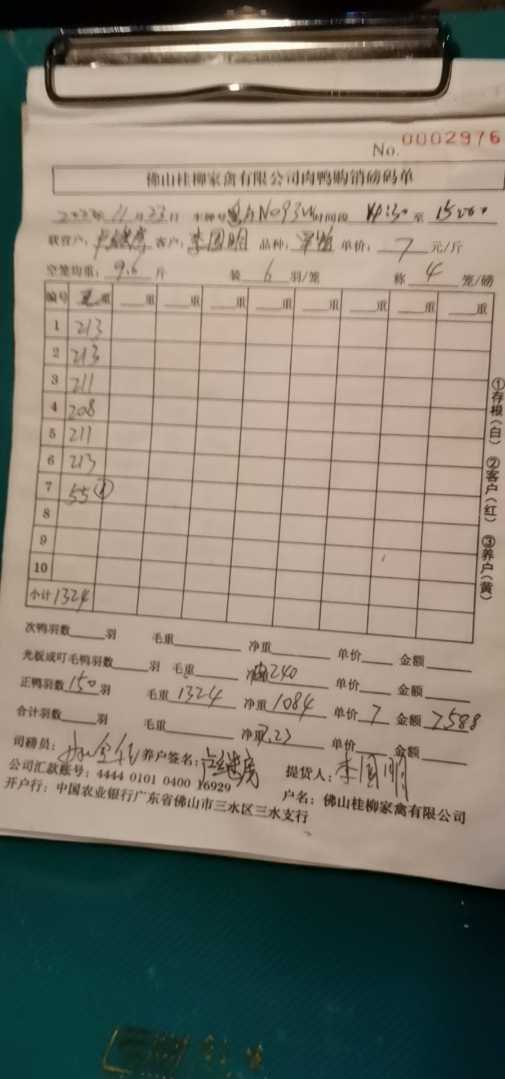 No. 0002976
佛山桂柳家禽有限公司肉鸭购销磅码单
11月23日 车牌号 时间段 14:30 至 15:00
联营户: 客户: 李国明 品种: 单价: 7 元/斤
空笼均重: 9.6 斤 装 6 羽/笼 称 4 笼/磅
编号 重 重 重 重 重 重 重 重
1 213
2 213
3 211
4 208
5 211
6 213
7 55
8
9
10
小计 1324
①存根(白) ②客户(红) ③养户(黄)
次鸭羽数 羽 毛重 净重 单价 金额
光板或叮毛鸭羽数 羽 毛重 240 单价 金额
正鸭羽数 150 羽 毛重 1324 净重 1084 单价 7 金额 7588
合计羽数 羽 毛重 净重 7.23 单价 金额
司磅员: 养户签名: 提货人: 李国明
公司汇款账号: 4444 0101 0400 16929 户名: 佛山桂柳家禽有限公司
开户行: 中国农业银行广东省佛山市三水区三水支行